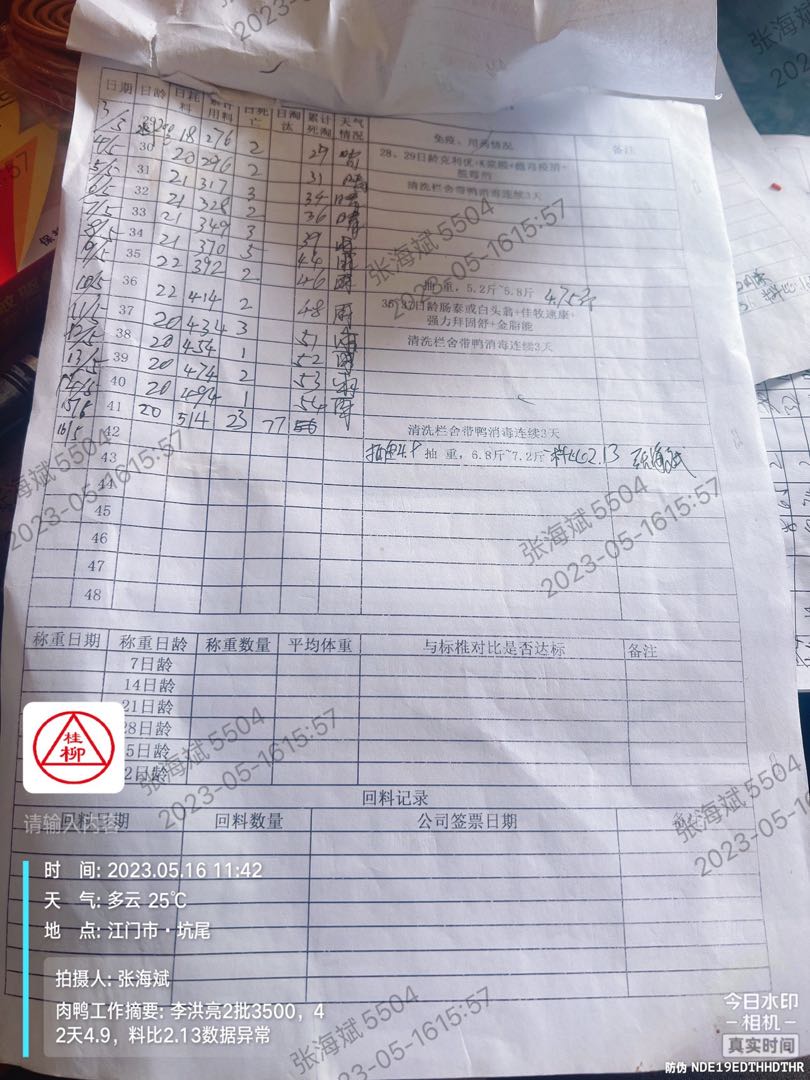 日期 日龄 日耗料 累计用料 日死亡 日淘汰 累计死淘 天气情况 免疫、用药情况 备注
3/5 29 18 276 2 29 晴 28、29日龄克利优+
4/5 30 20 296 2 31 晴 清洗栏舍带鸭消毒连续3天
5/5 31 21 317 3 34 晴
6/5 32 21 328 2 36 晴
7/5 33 21 349 3 39
8/5 34 21 370 5 44 雨
9/5 35 22 392 2 46 雨 抽 重，5.2斤~5.8斤 4.75斤
10/5 36 22 414 2 48 雨 35-37日龄肠泰或白头翁+佳牧速康+强力拜固舒+金脂能
11/5 37 20 434 3 51 清洗栏舍带鸭消毒连续3天
12/5 38 20 454 1 52
13/5 39 20 474 2 53
14/5 40 20 494 1 54
15/5 41 20 514 23 77
16/5 42 清洗栏舍带鸭消毒连续3天
43 抽重4.9 抽 重，6.8斤~7.2斤 料比2.13 张海斌
44
45
46
47
48
称重日期 称重日龄 称重数量 平均体重 与标椎对比是否达标 备注
7日龄
14日龄
21日龄
28日龄
5日龄
2日龄
回料记录
回料日期 回料数量 公司签票日期 备注
桂柳
请输入内容
时 间: 2023.05.16 11:42
天 气: 多云 25℃
地 点: 江门市·坑尾
拍摄人: 张海斌
肉鸭工作摘要: 李洪亮2批3500，4
2天4.9，料比2.13数据异常
今日水印
-相机-
真实时间
防伪 NDE19EDTHHDTHR
张海斌 5504
2023-05-1615:57
张海斌 5504
2023-05-1615:57
张海斌 5504
2023-05-1615:57
张海斌 5504
2023-05-1615:57
张海斌 5504
张海斌 5504
2023-05-1615:57